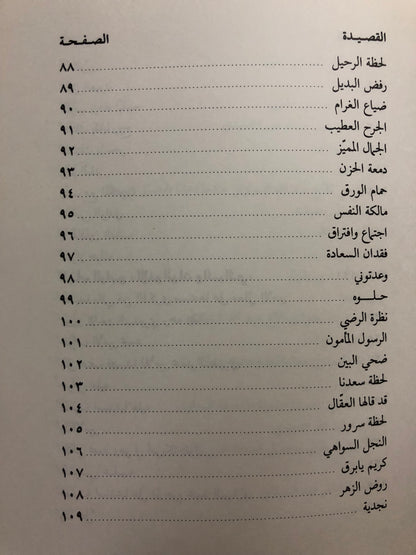 القصيدة الصفحة
لحظة الرحيل ٨٨
رفض البديل ٨٩
ضياع الغرام ٩٠
الجرح العطيب ٩١
الجمال المميّز ٩٢
دمعة الحزن ٩٣
حمام الورق ٩٤
مالكة النفس ٩٥
اجتماع وافتراق ٩٦
فقدان السعادة ٩٧
وعدتوني ٩٨
حلوه ٩٩
نظرة الرضي ١٠٠
الرسول المأمون ١٠١
ضحي البين ١٠٢
لحظة سعدنا ١٠٣
قد قالها العقّال ١٠٤
لحظة سرور ١٠٥
النجل السواهي ١٠٦
كريم يابرق ١٠٧
روض الزهر ١٠٨
نجدية ١٠٩